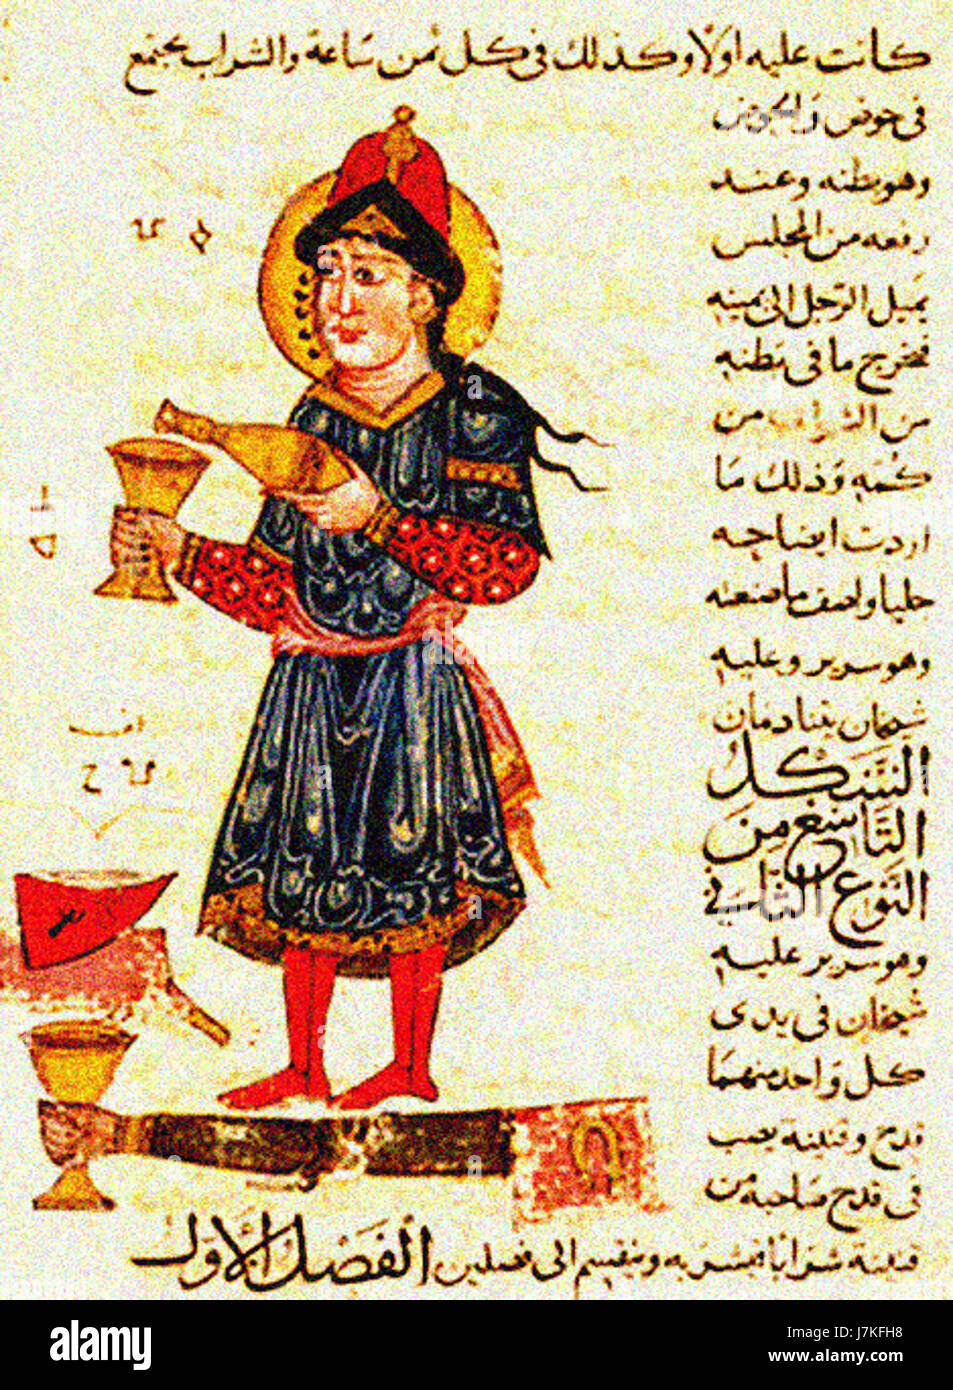 كانت عليه اولا وكذلك فى كل ثمن ساعة والشراب يجتمع
فى حوض والحوض
وهو بطنه وعند
رفعه من المجلس
يميل الرجل الى يمينه
فيخرج ما فى بطنه
من الشراب من
كمه وذلك ما
اردت ايضاحه
جليا واصف ما صنعته
وهو سرير وعليه
شيخان يتنادمان
الشكل
التاسع من
النوع الثانى
وهو سرير عليه
شيخان فى يدى
كل واحد منهما
قدح وقنينة يصب
فى قدح صاحبه من
قنينة شرابا فيشربه وينقسم الى فصلين الفصل الاول
alamy
a
alamy
Image ID: J7KFH8
www.alamy.com